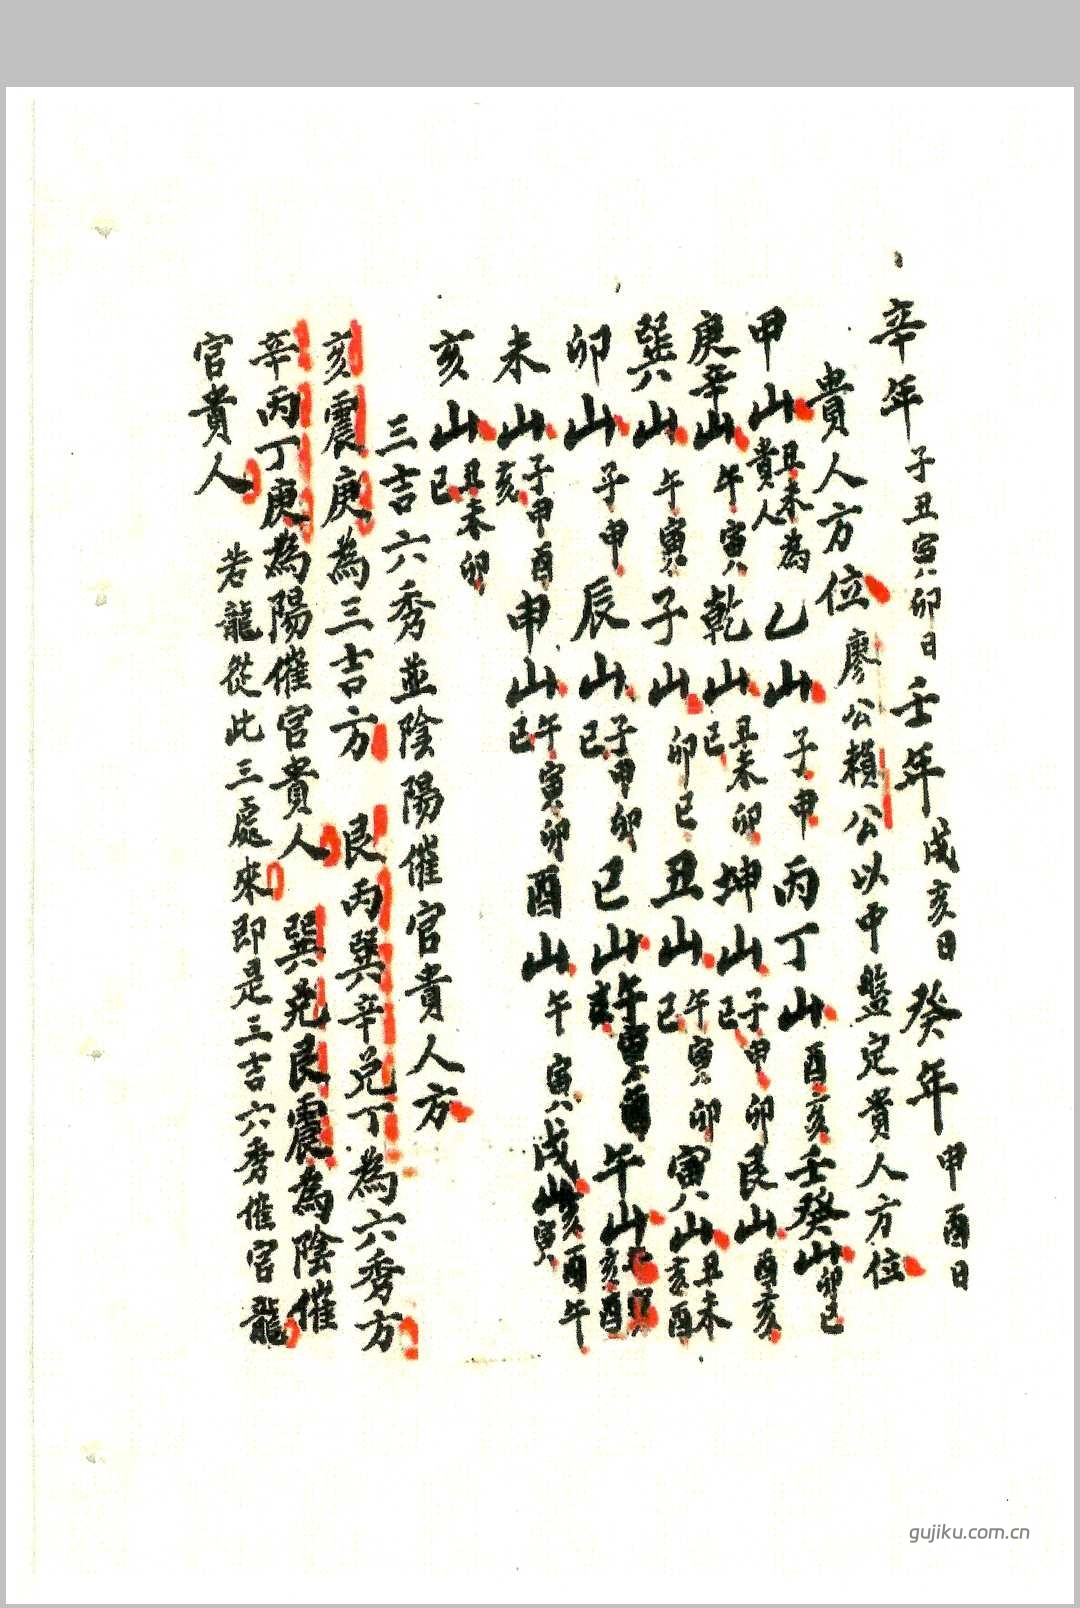 辛年子丑寅卯日壬年戌亥日癸年申酉日
貴人方位廖公賴公以中盤定貴人方位
甲山丑未為貴人乙山子申丙丁山酉亥壬癸山卯巳
庚辛山午寅乾山丑未卯巳坤山子申卯巳艮山酉亥
巽山午寅子山卯巳丑山午寅卯巳寅山丑未亥酉
卯山子申辰山子申卯巳巳山午寅酉午山亥酉
未山子申酉亥申山午寅卯巳酉山午寅戌山亥酉午寅
亥山丑未卯巳
三吉六秀並陰陽催官貴人方
亥震庚為三吉方 艮丙巽辛兌丁為六秀方
辛丙丁庚為陽催官貴人 巽兌艮震為陰催
官貴人 若龍從此三處來即是三吉六秀催官龍
gujiku.com.cn